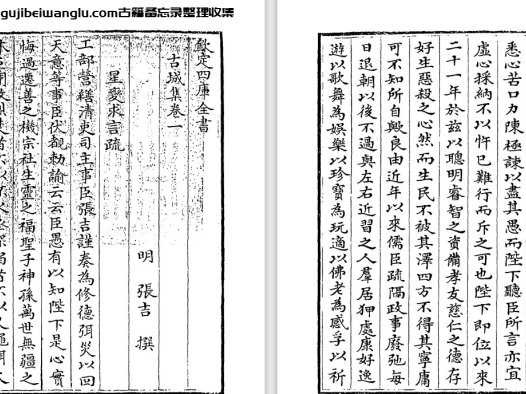 gujibeiwanglu.com古籍备忘录整理收集
欽定四庫全書
古城集卷一
明 張吉 撰
星變求言疏
工部營繕清吏司主事臣張吉謹奏為修德弭災以回
天意等事臣伏覩勅諭云云臣愚有以知陛下是心實
悔過遷善之機宗社生靈之福聖子神孫萬世無疆之
悉心苦口力陳極諫以盡其愚而陛下聽臣所言亦宜
虛心採納不以忤己難行而斥之可也陛下即位以來
二十一年於兹以聰明睿智之資備孝友慈仁之德存
好生惡殺之心然而生民不被其澤四方不得其寧庸
可不知所自歟良由近年以來儒臣疏隔政事廢弛每
日退朝以後不過與左右近習之人羣居狎處康好逸
遊以歌舞為娛樂以珍寶為玩適以佛老為感孚以祈